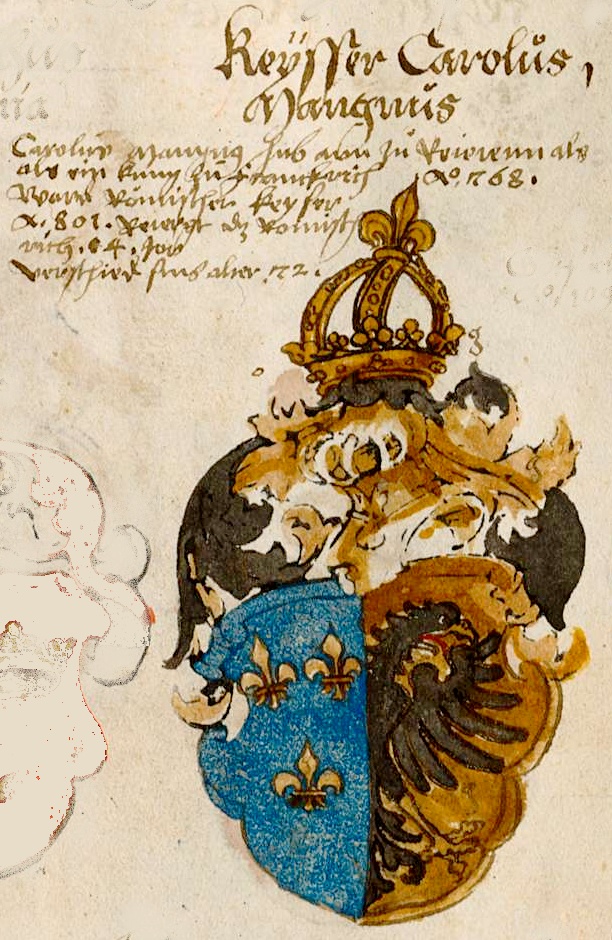 Keÿsser Carolus,
Mangnus
Carolus Mangnus hub ann zů Reieren als
als ein kung zu Franckrich A°. 768.
Ward Römischer Keyser
A. 801. Reiergt dz Römisch
rich. 14. Jor
verschied sins alter .72.